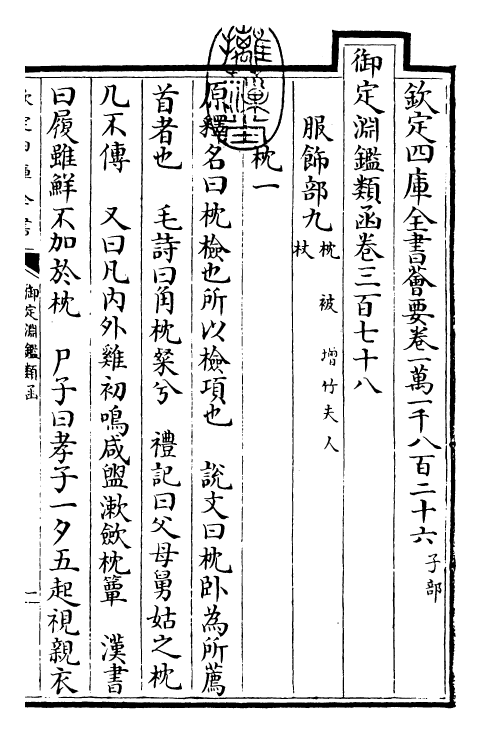 欽定四庫全書薈要卷一萬一千八百二十六子部
御定淵鑑類函卷三百七十八
服飾部九枕 被 增竹夫人 杖
枕一
原釋名曰枕檢也所以檢項也 說文曰枕卧為所薦
首者也 毛詩曰角枕粲兮 禮記曰父母舅姑之枕
几不傳 又曰凡内外雞初鳴咸盥漱斂枕簟 漢書
曰履雖鮮不加於枕 尸子曰孝子一夕五起視親衣
御定淵鑑類函